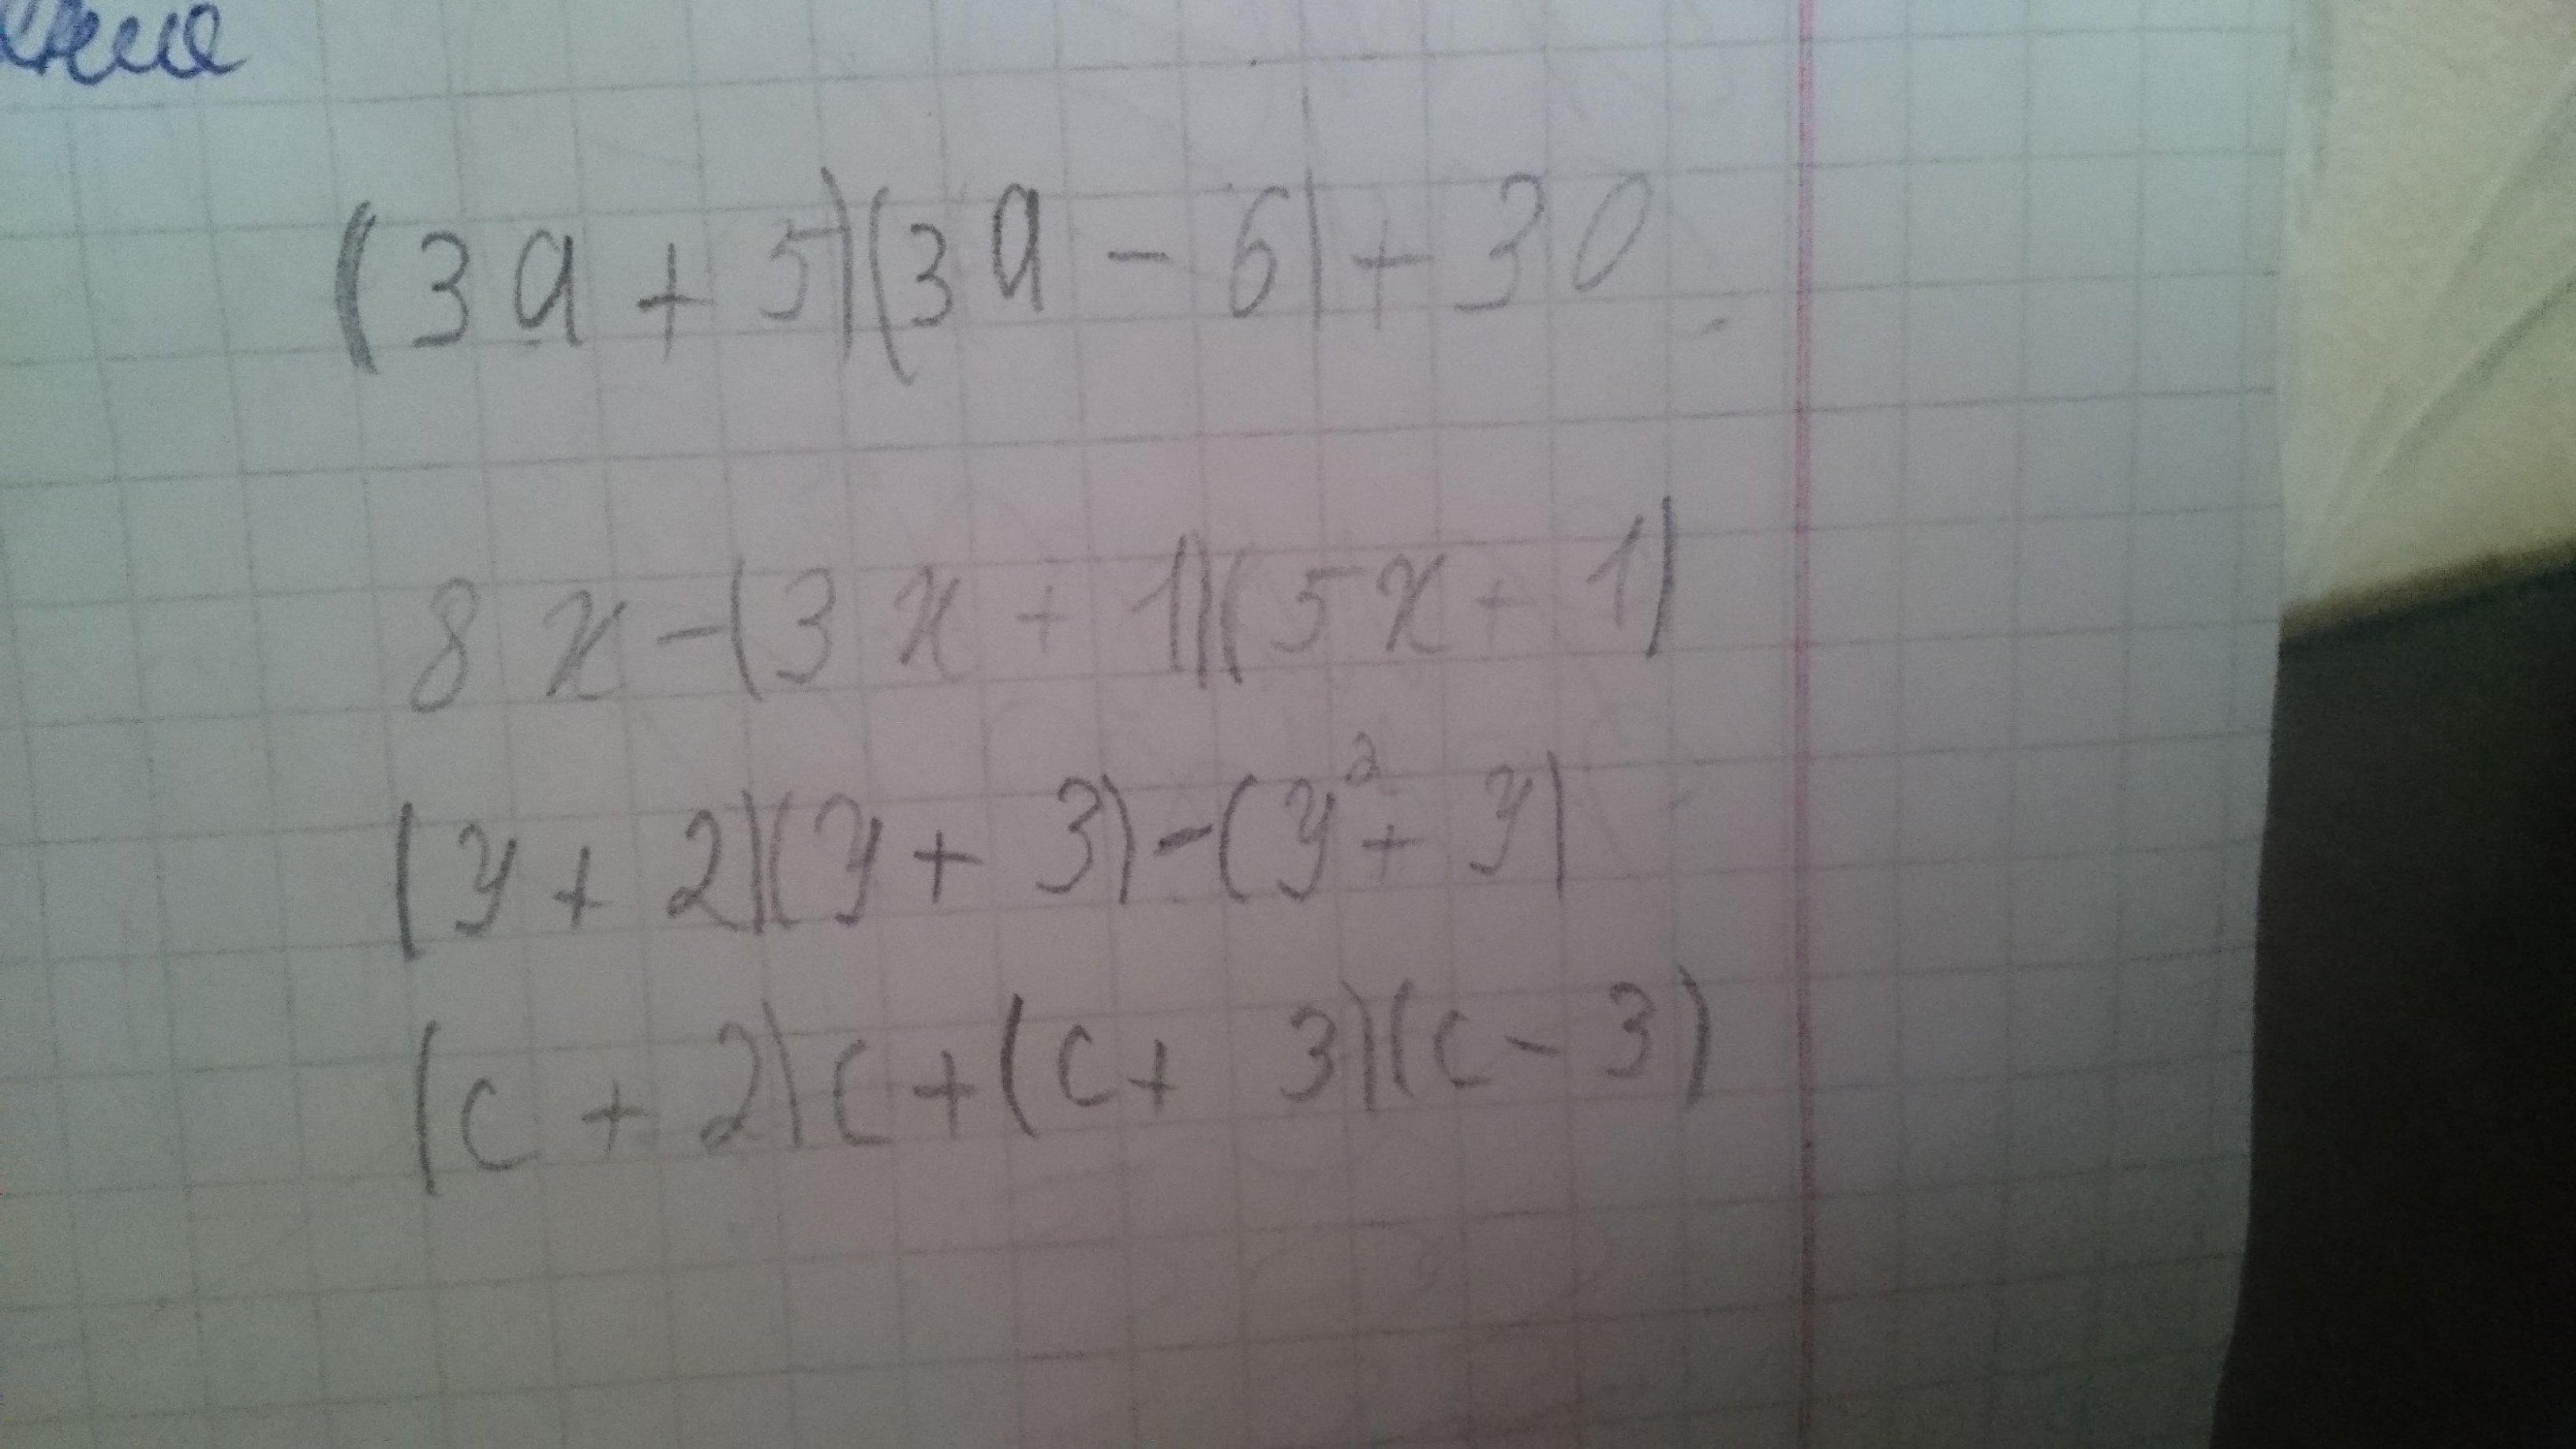 (3a + 5)(3a - 6) + 30
8x - (3x + 1)(5x + 1)
(y + 2)(y + 3) - (y² + y)
(c + 2)c + (c + 3)(c - 3)